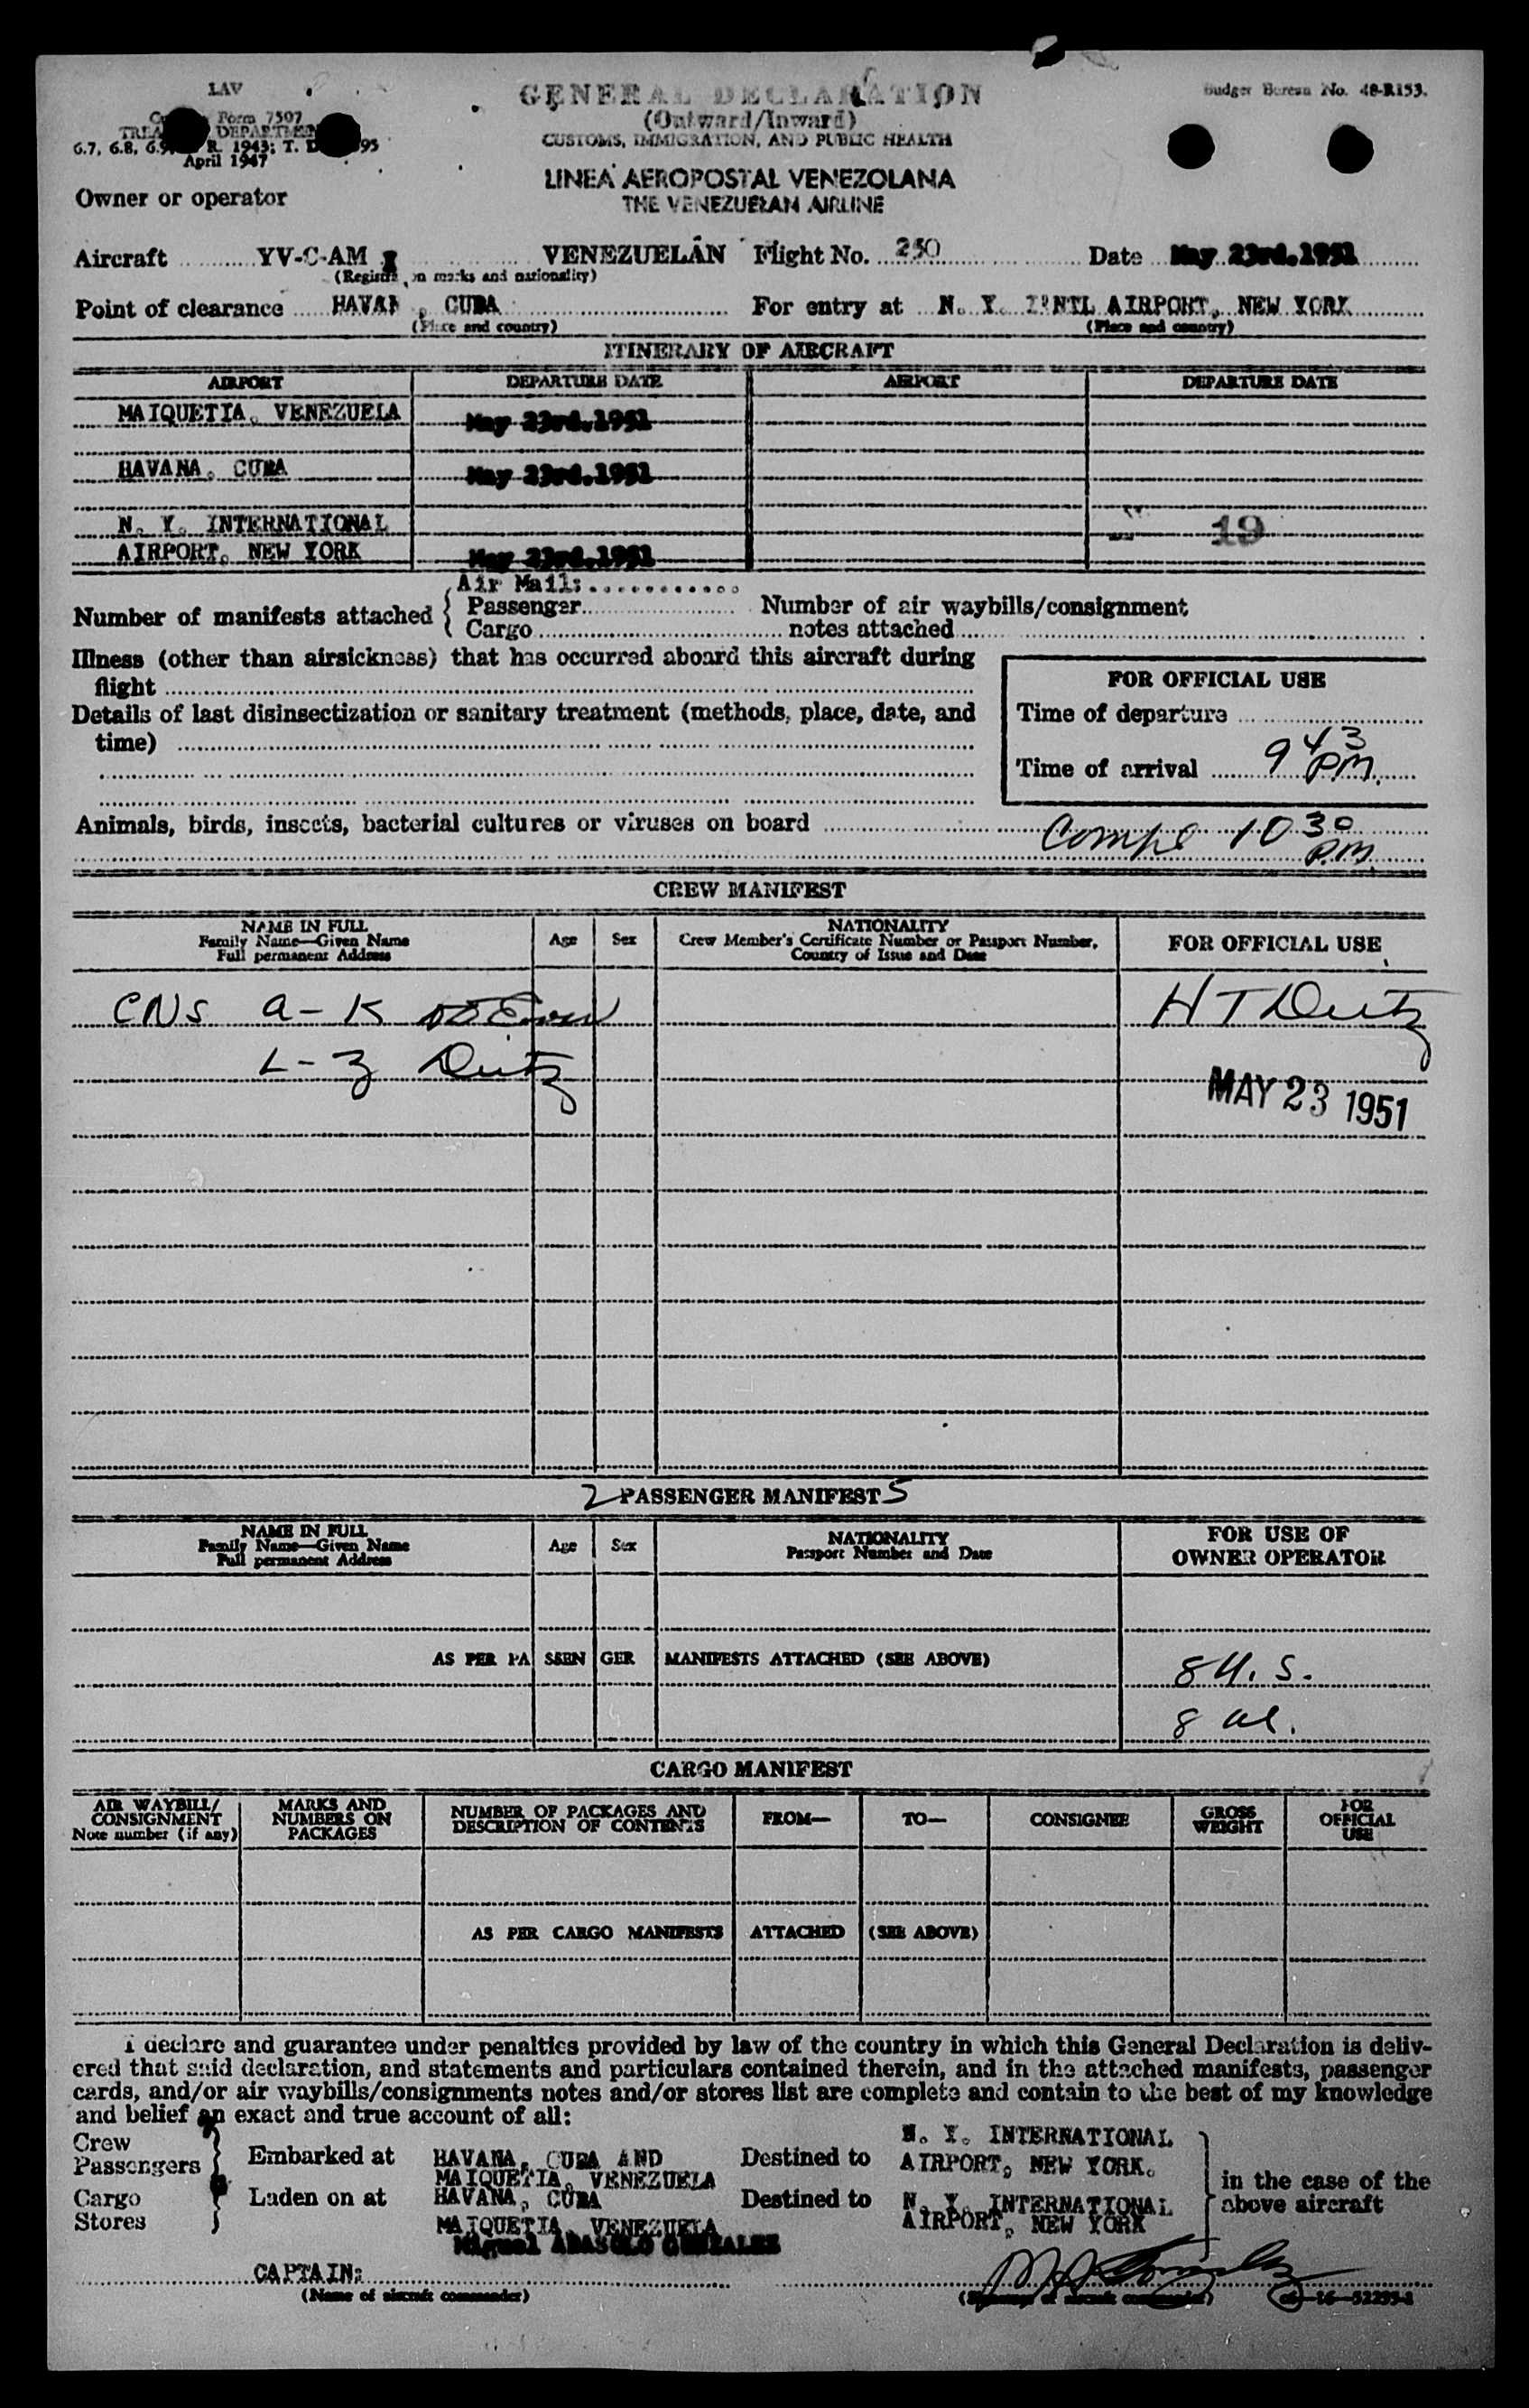 LAV
GENERAL DECLARATION
Budget Bureau No. 48-R153.
Form 7507
(Outward/Inward)
DEPARTMEN
CUSTOMS, IMMIGRATION, AND PUBLIC HEALTH
6.7, 6.8, 6.9, R. 1943; T. D. 95
April 1947
LINEA AEROPOSTAL VENEZOLANA
THE VENEZUELAN AIRLINE
Owner or operator
Aircraft YV-C-AM VENEZUELAN Flight No. 250 Date May 23rd.1951
(Registration marks and nationality)
Point of clearance HAVANA, CUBA For entry at N. Y. INTL AIRPORT, NEW YORK
(Place and country) (Place and country)
ITINERARY OF AIRCRAFT
AIRPORT DEPARTURE DATE AIRPORT DEPARTURE DATE
MAIQUETIA, VENEZUELA May 23rd.1951
HAVANA, CUBA May 23rd.1951
N. Y. INTERNATIONAL 19
AIRPORT, NEW YORK May 23rd.1951
Air Mail:
Number of manifests attached { Passenger Number of air waybills/consignment
Cargo notes attached
Illness (other than airsickness) that has occurred aboard this aircraft during
flight
FOR OFFICIAL USE
Details of last disinsectization or sanitary treatment (methods, place, date, and
time)
Time of departure
Time of arrival 9 43 PM.
Animals, birds, insects, bacterial cultures or viruses on board
Compl 10 30 P.M.
CREW MANIFEST
NAME IN FULL
Family Name—Given Name
Full permanent Address
Age Sex
NATIONALITY
Crew Member's Certificate Number or Passport Number,
Country of Issue and Date
FOR OFFICIAL USE
CNS a-K
H T Deitz
L-Z Deitz
MAY 23 1951
2 PASSENGER MANIFEST 5
NAME IN FULL
Family Name—Given Name
Full permanent Address
Age Sex
NATIONALITY
Passport Number and Date
FOR USE OF
OWNER OPERATOR
AS PER PASSENGER MANIFESTS ATTACHED (SEE ABOVE)
8 U.S.
8 al.
CARGO MANIFEST
AIR WAYBILL/
CONSIGNMENT
Note number (if any)
MARKS AND
NUMBERS ON
PACKAGES
NUMBER OF PACKAGES AND
DESCRIPTION OF CONTENTS
FROM— TO— CONSIGNEE
GROSS
WEIGHT
FOR
OFFICIAL
USE
AS PER CARGO MANIFESTS ATTACHED (SEE ABOVE)
I declare and guarantee under penalties provided by law of the country in which this General Declaration is deliv-
ered that said declaration, and statements and particulars contained therein, and in the attached manifests, passenger
cards, and/or air waybills/consignments notes and/or stores list are complete and contain to the best of my knowledge
and belief an exact and true account of all:
Crew
Passengers
Embarked at HAVANA, CUBA AND
MAIQUETIA, VENEZUELA
Destined to N. Y. INTERNATIONAL
AIRPORT, NEW YORK.
Cargo
Stores
Laden on at HAVANA, CUBA
MAIQUETIA, VENEZUELA
Destined to N. Y. INTERNATIONAL
AIRPORT, NEW YORK
in the case of the
above aircraft
Miguel ABASOLO GONZALEZ
CAPTAIN:
(Name of aircraft commander) (Signature of aircraft commander) 16—52295-1